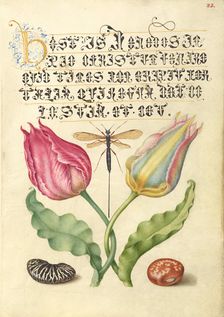 23.
HOSTIS HERODES IM
PIE CHRISTUM VENIRE
QUID TIMES NON ERIPIT MOR
TALIA, QUI REGNA DAT COE
LESTIA. ET CET.